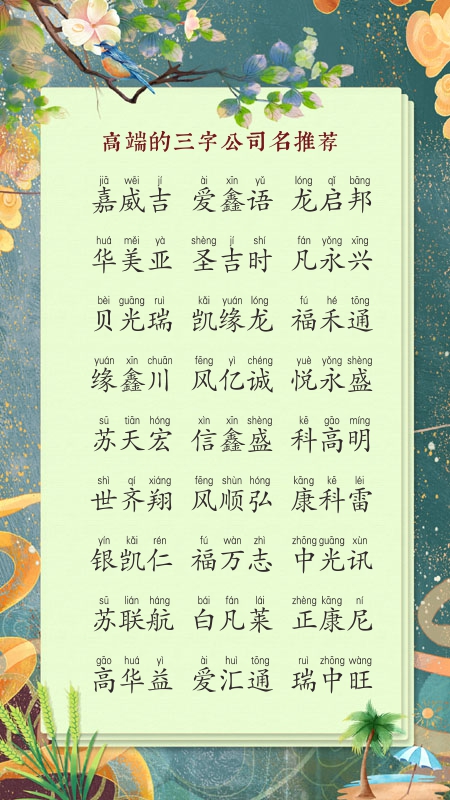 高端的三字公司名推荐
jiā wēi jí ài xīn yǔ lóng qǐ bāng
嘉威吉 爱鑫语 龙启邦
huá měi yà shèng jí shí fán yǒng xīng
华美亚 圣吉时 凡永兴
bèi guāng ruì kǎi yuán lóng fú hé tōng
贝光瑞 凯缘龙 福禾通
yuán xīn chuān fēng yì chéng yuè yǒng shèng
缘鑫川 风亿诚 悦永盛
sū tiān hóng xìn xīn shèng kē gāo míng
苏天宏 信鑫盛 科高明
shì qí xiáng fēng shùn hóng kāng kē léi
世齐翔 风顺弘 康科雷
yín kǎi rén fú wàn zhì zhōng guāng xùn
银凯仁 福万志 中光讯
sū lián háng bái fán lái zhèng kāng ní
苏联航 白凡莱 正康尼
gāo huá yì ài huì tōng ruì zhōng wàng
高华益 爱汇通 瑞中旺